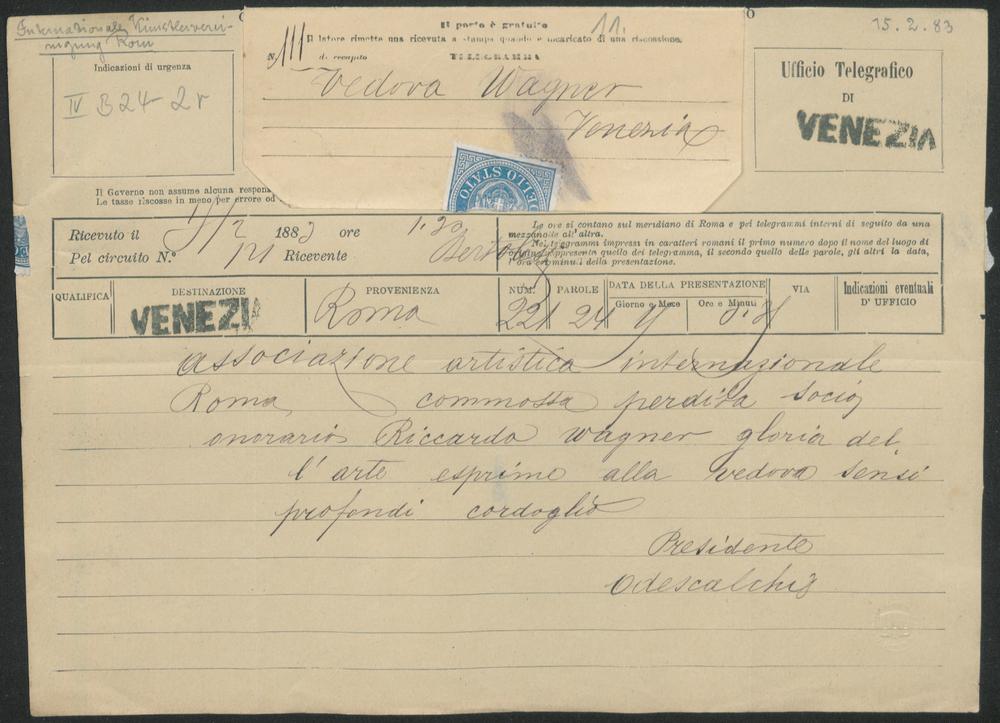 Internationale Künstlerverei-
nigung Rom
11.
15.2.83
Il porto è gratuito
Il latore rimette una ricevuta a stampa quando è incaricato di una riscossione.
N. 111 di recapito TELEGRAMMA
Vedova Wagner
Venezia
Indicazioni di urgenza
IV B 24-2r
Ufficio Telegrafico
DI
VENEZIA
DELLO STATO
Il Governo non assume alcuna respon
Le tasse riscosse in meno per errore od
Ricevuto il 15/2 1883 ore 1.30
Pel circuito N.° 121 Ricevente
Le ore si contano sul meridiano di Roma e pei telegrammi interni di seguito da una
mezzanotte all'altra.
Nei telegrammi impressi in caratteri romani il primo numero dopo il nome del luogo di
origine rappresenta quello del telegramma, il secondo quello delle parole, gli altri la data,
l'ora e i minuti della presentazione.
QUALIFICA
DESTINAZIONE
VENEZIA
PROVENIENZA
Roma
NUM.
221
PAROLE
24
DATA DELLA PRESENTAZIONE
Giorno e Mese
Ore e Minuti
VIA
Indicazioni eventuali
D' UFFICIO
associazione artistica internazionale
Roma commossa perdita socio
onorario Riccardo Wagner gloria del
l'arte esprime alla vedova sensi
profondi cordoglio
Presidente
Odescalchi